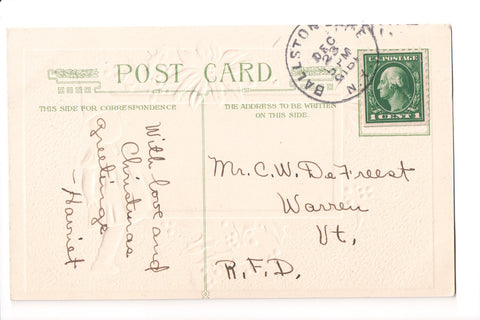 POST CARD.
THIS SIDE FOR CORRESPONDENCE
THE ADDRESS TO BE WRITTEN
ON THIS SIDE.
BALLSTON LAKE
DEC
23
PM
N.Y.
U.S. POSTAGE
1 CENT 1
With love and
Christmas
greetings
- Harriet
Mr. C. W. DeFreest
Warren
Vt.
R.F.D.